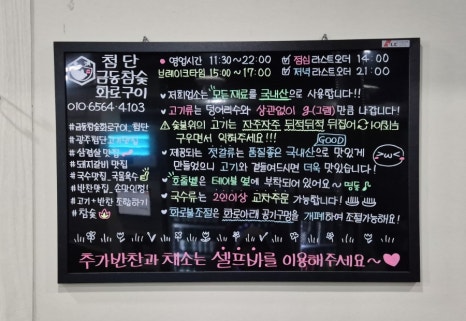 첨단
금동참숯
화로구이
010-6564-4103
#금동참숯화로구이_첨단
#광주첨단고기맛집
#삼겹살 맛집
#돼지갈비 맛집
#국수맛집_국물육수
#반찬맛집_손맛인정!
#고기+반찬 조합하기
#참숯
영업시간 11:30~22:00
브레이크타임 15:00~17:00
점심 라스트오더 14:00
저녁 라스트오더 21:00
저희업소는 모든재료를 국내산으로 사용합니다!!
고기류는 덩어리수와 상관없이 g(그램)만큼 나갑니다!
숯불위의 고기는 자주자주 뒤적뒤적 뒤집어
구우면서 익혀주세요!!!
GOOD
제공되는 젓갈류는 품질좋은 국내산으로 맛있게
만들었으니 고기와 곁들여드시면 더욱 맛있습니다!
호출벨은 테이블 옆에 부착되어 있어요~ 띵동
국수류는 2인이상 교차주문 가능합니다!
화로불조절은 화로아래 공기구멍을 개폐하여 조절가능해요!
추가반찬과 채소는 셀프바를 이용해주세요~